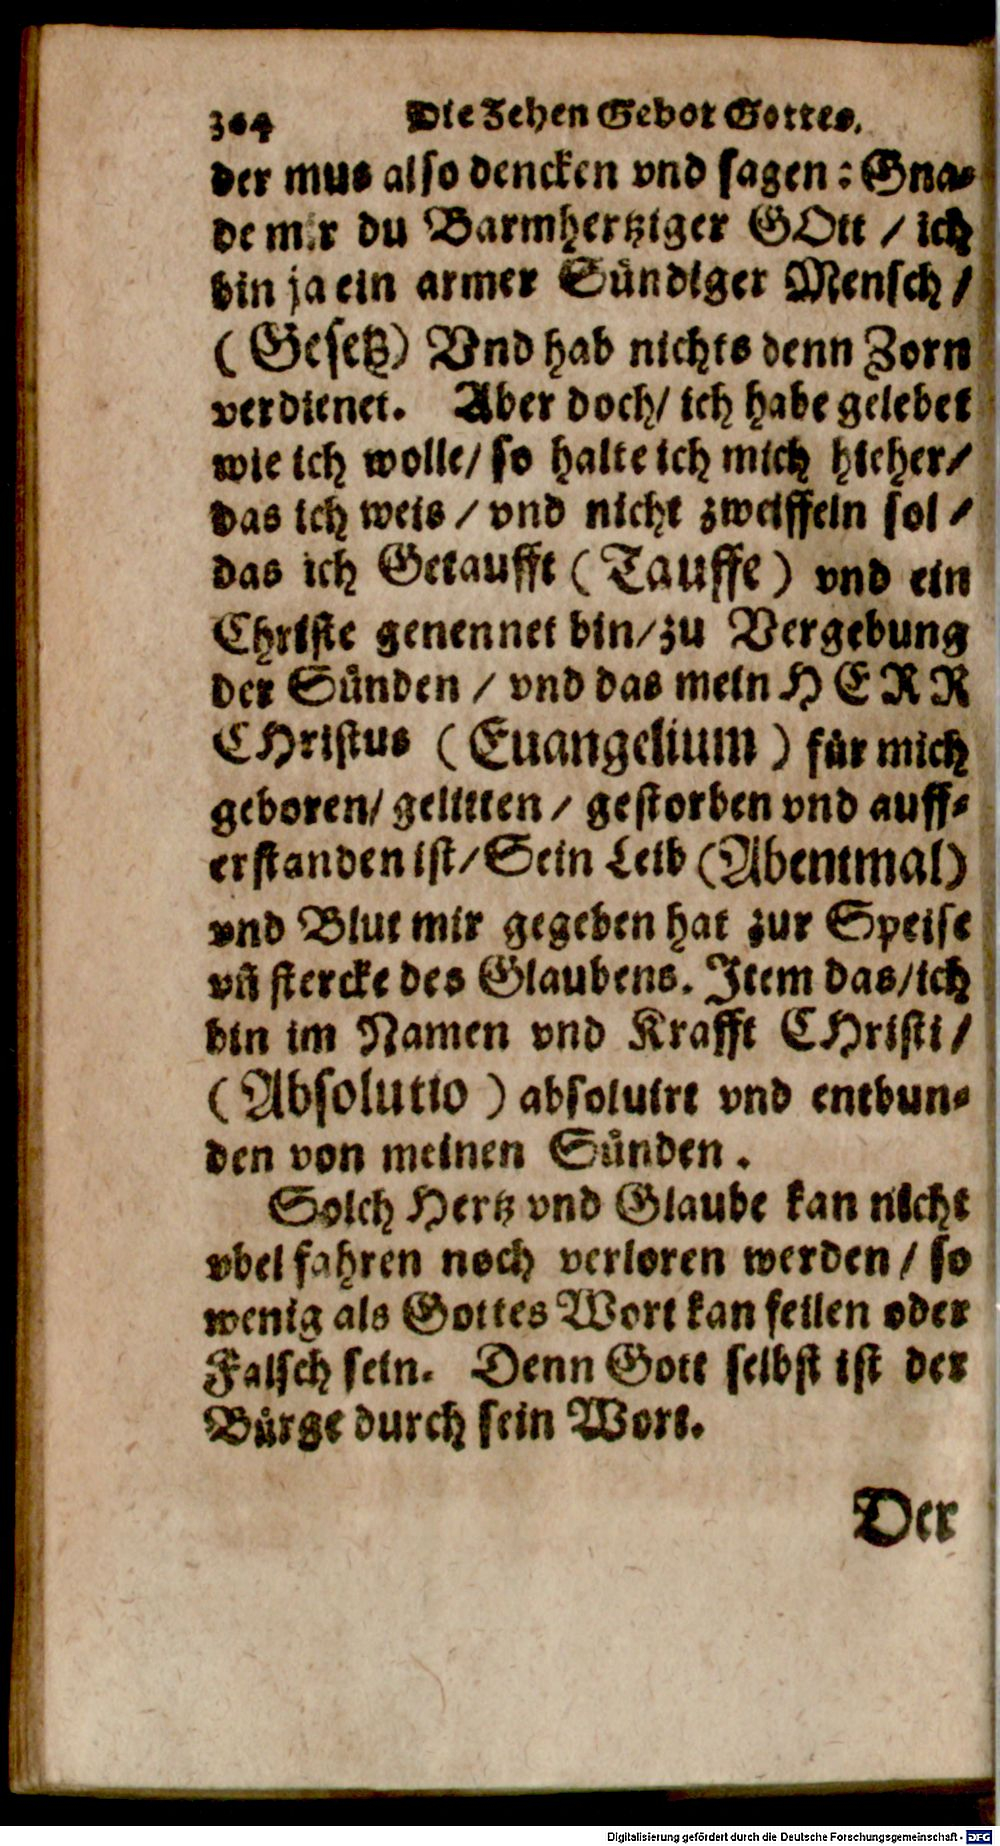 304 Die Zehen Gebot Gottes.
der mus also dencken vnd sagen: Gna-
de mir du Barmhertziger GOtt / ich
bin ja ein armer Sündiger Mensch /
(Gesetz) Vnd hab nichts denn Zorn
verdienet. Aber doch/ ich habe gelebet
wie ich wolle/ so halte ich mich hieher/
das ich weis / vnd nicht zweiffeln sol /
das ich Getaufft (Tauffe) vnd ein
Christe genennet bin/ zu Vergebung
der Sünden / vnd das mein HERR
CHristus (Euangelium) für mich
geboren/ gelitten / gestorben vnd auff-
erstanden ist/ Sein Leib (Abentmal)
vnd Blut mir gegeben hat zur Speise
vñ stercke des Glaubens. Item das/ich
bin im Namen vnd Krafft CHristi/
(Absolutio) absoluirt vnd entbun-
den von meinen Sünden.
Solch Hertz vnd Glaube kan nicht
vbel fahren noch verloren werden / so
wenig als Gottes Wort kan feilen oder
Falsch sein. Denn Gott selbst ist der
Bürge durch sein Wort.
Der
Digitalisierung gefördert durch die Deutsche Forschungsgemeinschaft - DFG